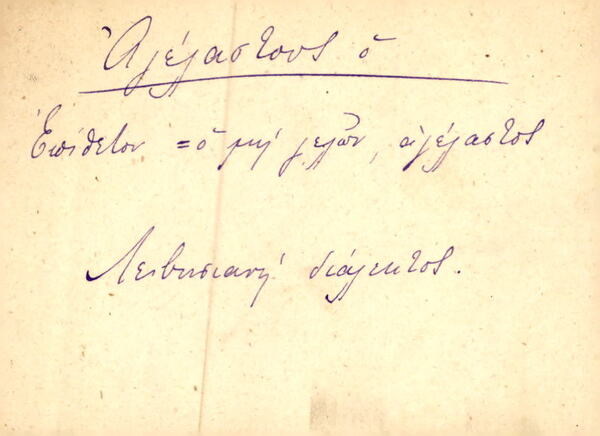 Ἀγέλαστους ὁ
Ἐπίθετον = ὁ μὴ γελῶν, ἀγέλαστος
Λειβησιανὴ διάλεκτος.